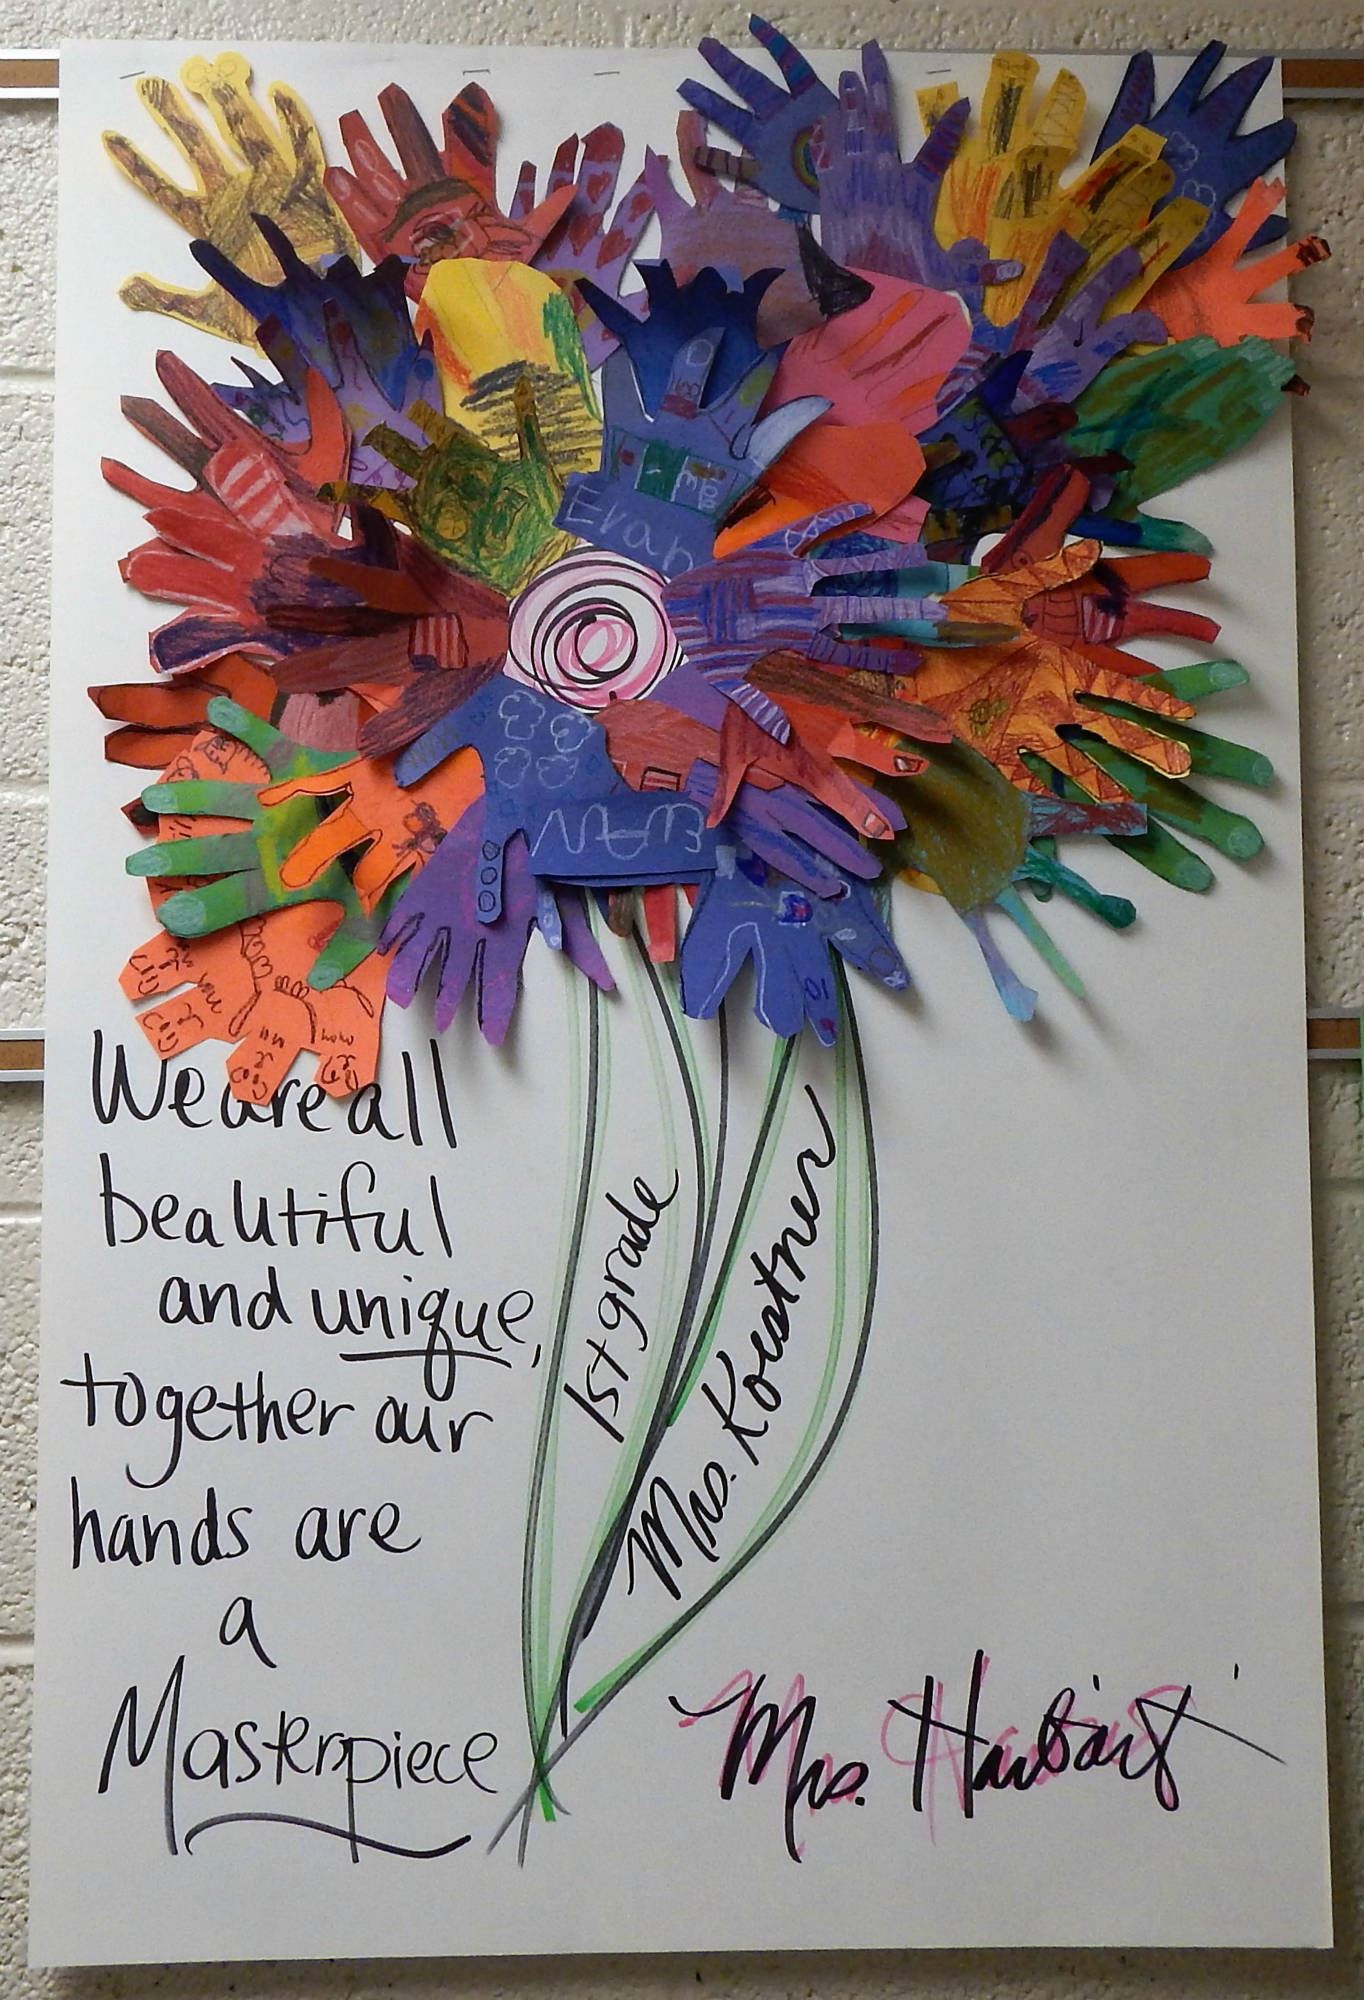 Evan
We are all
beautiful
and unique,
together our
hands are
a
Masterpiece
1st grade
Mrs. Koestner
Mrs. Harbart